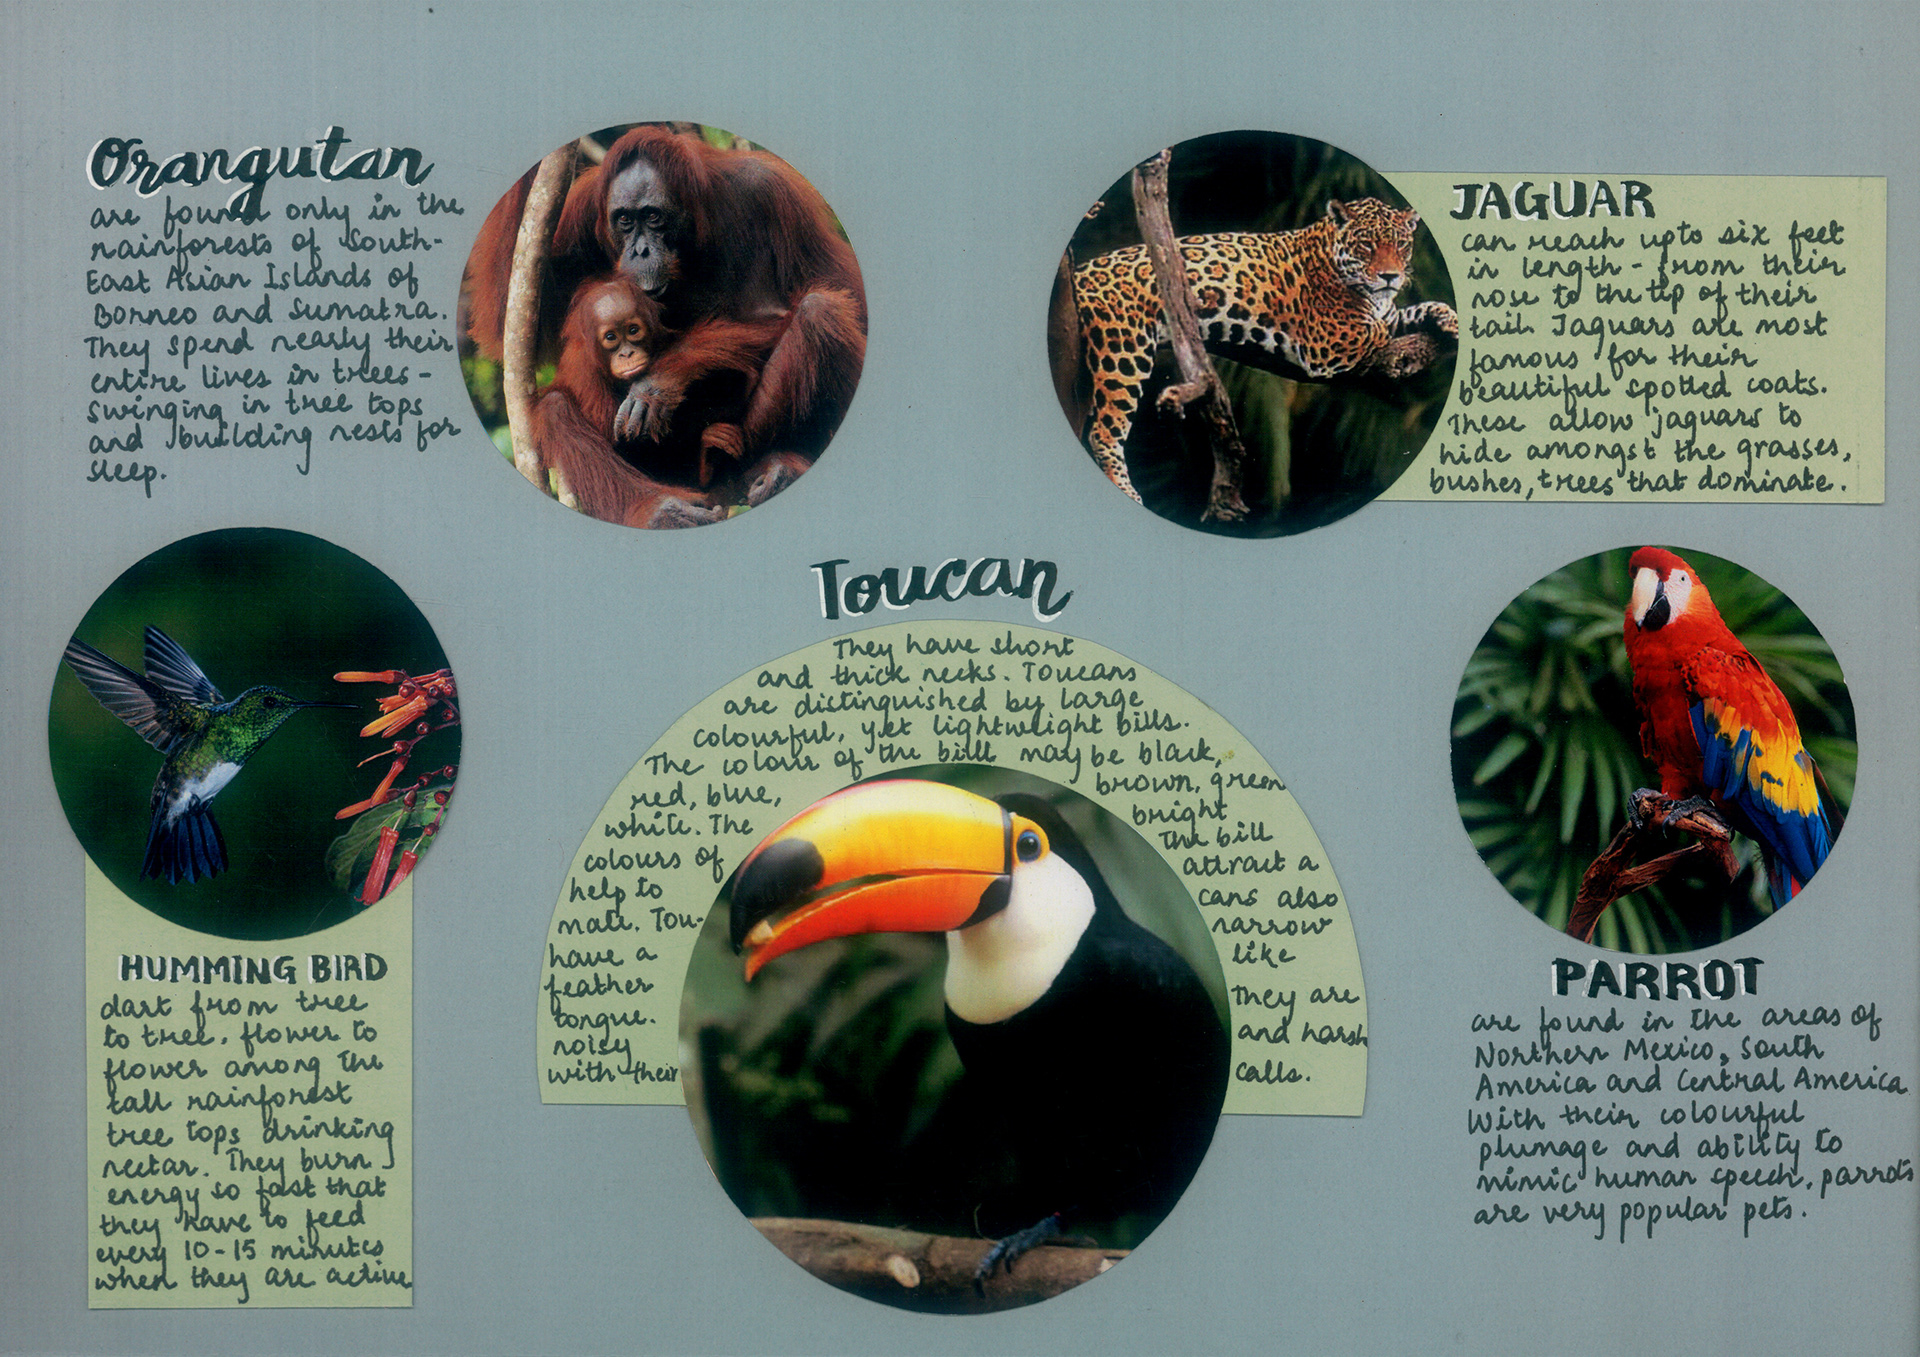 Orangutan
are found only in the
rainforests of South-
East Asian Islands of
Borneo and Sumatra.
They spend nearly their
entire lives in trees -
swinging in tree tops
and building nests for
sleep.
JAGUAR
can reach upto six feet
in length - from their
nose to the tip of their
tail. Jaguars are most
famous for their
beautiful spotted coats.
These allow jaguars to
hide amongst the grasses,
bushes, trees that dominate.
HUMMING BIRD
dart from tree
to tree, flower to
flower among the
tall rainforest
tree tops drinking
nectar. They burn
energy so fast that
they have to feed
every 10-15 minutes
when they are active
Toucan
They have short
and thick necks. Toucans
are distinguished by large
colourful, yet lightweight bills.
The colour of the bill may be black,
red, blue, brown, green
white. The bright
colours of the bill
help to attract a
mate. Tou- cans also
have a narrow
feather like
tongue. They are
noisy and harsh
with their calls.
PARROT
are found in the areas of
Northern Mexico, South
America and Central America
With their colourful
plumage and ability to
mimic human speech, parrots
are very popular pets.